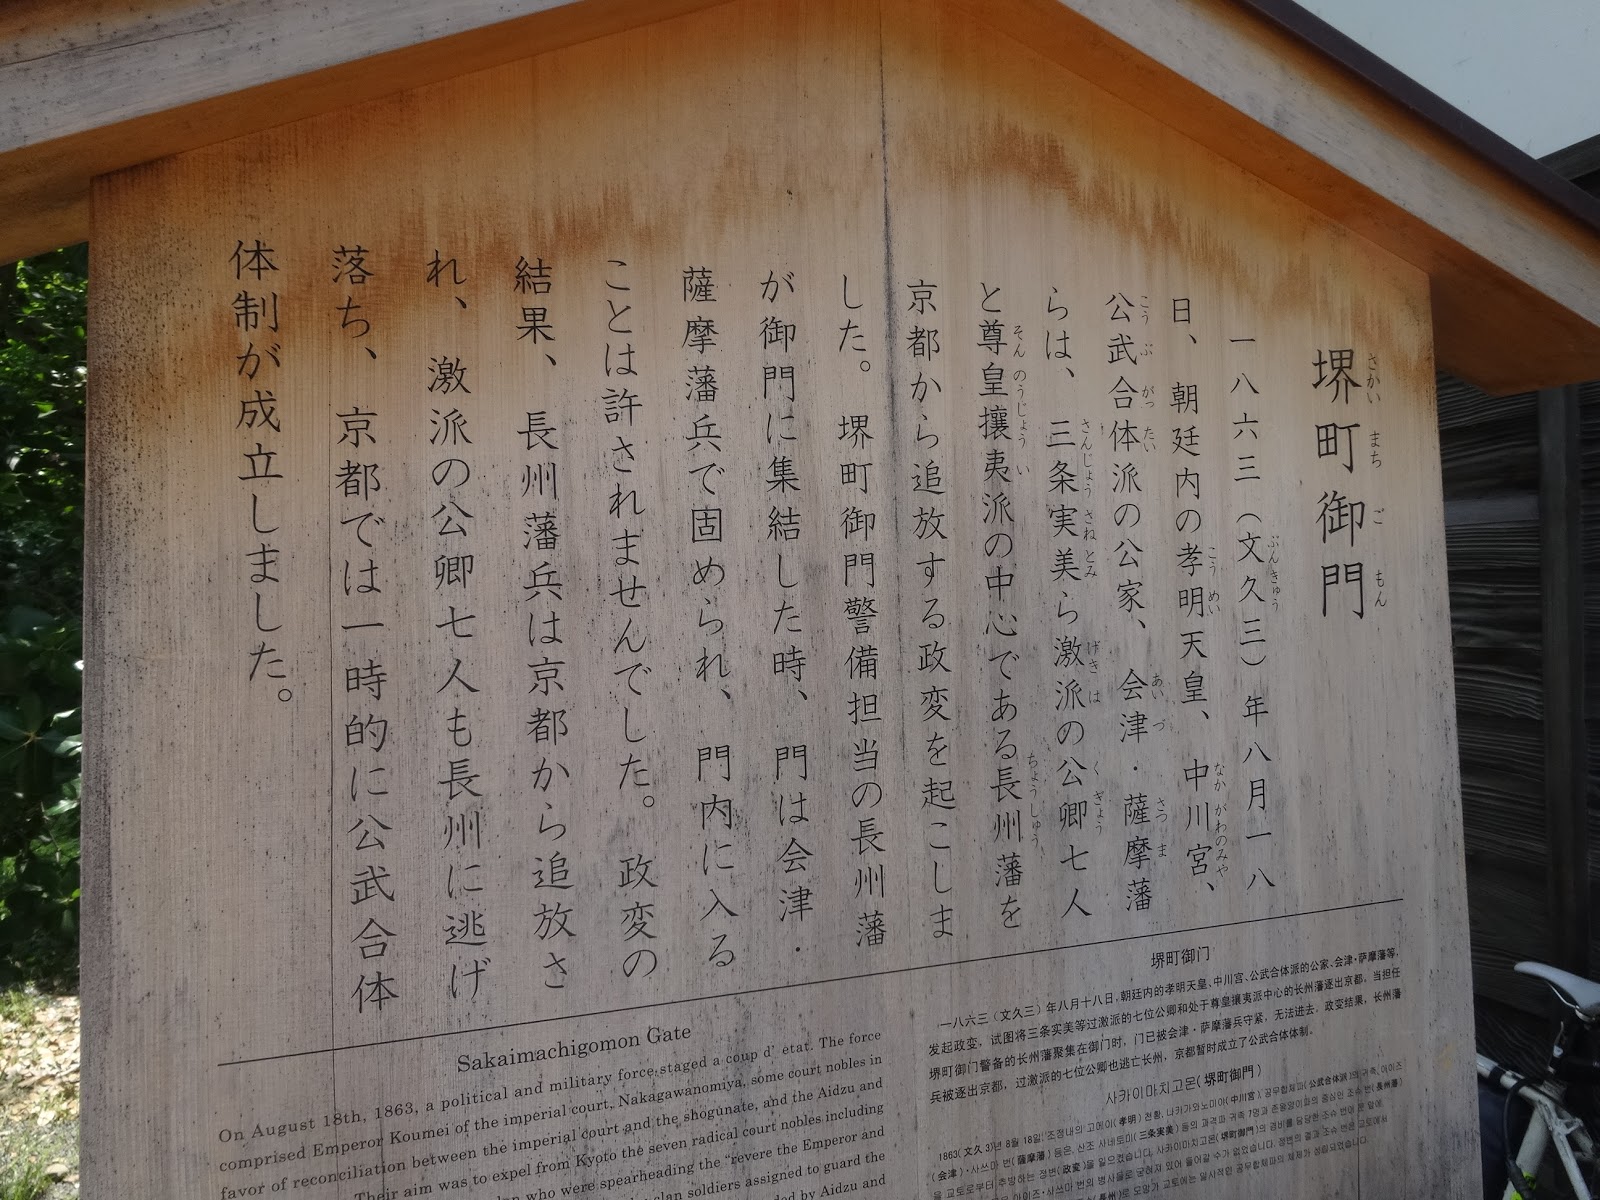 堺町御門
さかいまちごもん
一八六三（文久三）年八月一八
ぶんきゅう
日、朝廷内の孝明天皇、中川宮、
こうめい なかがわのみや
公武合体派の公家、会津・薩摩藩
こうぶがったい あいづ さつま
らは、三条実美ら激派の公卿七人
さんじょうさねとみ げきは くぎょう
と尊皇攘夷派の中心である長州藩を
そんのうじょうい ちょうしゅう
京都から追放する政変を起こしま
した。堺町御門警備担当の長州藩
が御門に集結した時、門は会津・
薩摩藩兵で固められ、門内に入る
ことは許されませんでした。政変の
結果、長州藩兵は京都から追放さ
れ、激派の公卿七人も長州に逃げ
落ち、京都では一時的に公武合体
体制が成立しました。
Sakaimachigomon Gate
On August 18th, 1863, a political and military force staged a coup d' etat. The force
comprised Emperor Koumei of the imperial court, Nakagawanomiya, some court nobles in
favor of reconciliation between the imperial court and the shogunate, and the Aidzu and
Their aim was to expel from Kyoto the seven radical court nobles including
who were spearheading the "revere the Emperor and
clan soldiers assigned to guard the
by Aidzu and
堺町御门
一八六三（文久三）年八月十八日，朝廷内的孝明天皇、中川宫、公武合体派的公家、会津・萨摩藩等，
发起政变，试图将三条实美等过激派的七位公卿和处于尊皇攘夷派中心的长州藩逐出京都，当担任
堺町御门警备的长州藩聚集在御门时，门已被会津・萨摩藩兵守紧，无法进去，政变结果，长州藩
兵被逐出京都，过激派的七位公卿也逃亡长州，京都暂时成立了公武合体体制。
사카이마치고몬(堺町御門)
1863(文久 3)년 8월 18일, 조정내의 고메이(孝明) 천황, 나카가와노미야(中川宮), 공무합체파(公武合体派)의 귀족, 아이즈
(会津)・사쓰마 번(薩摩藩) 등은, 산조 사네토미(三条実美) 등의 과격파 귀족 7명과 존왕양이파의 중심인 조슈 번(長州藩)
을 교토로부터 추방하는 정변(政変)을 일으켰습니다. 사카이마치고몬(堺町御門)의 경비를 담당한 조슈 번이 문 앞에